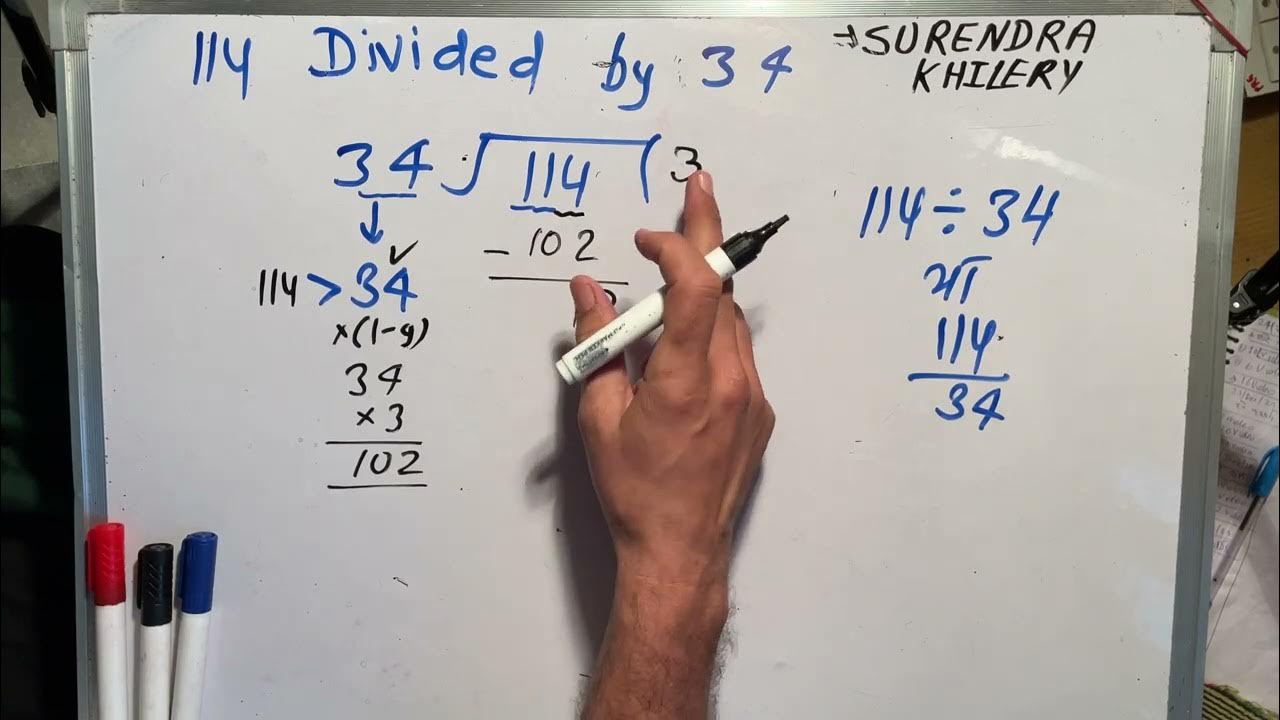 114 Divided by 34
→SURENDRA
KHILERY
34 √114 ( 3
- 102
114 > 34 ✓
×(1-9)
34
×3
102
114÷34
या
114
34